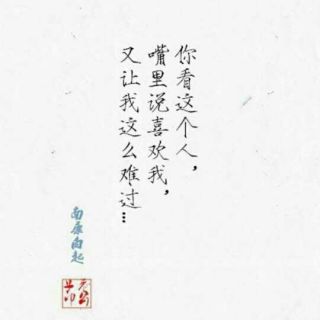 你看这个人，
嘴里说喜欢我，
又让我这么难过…